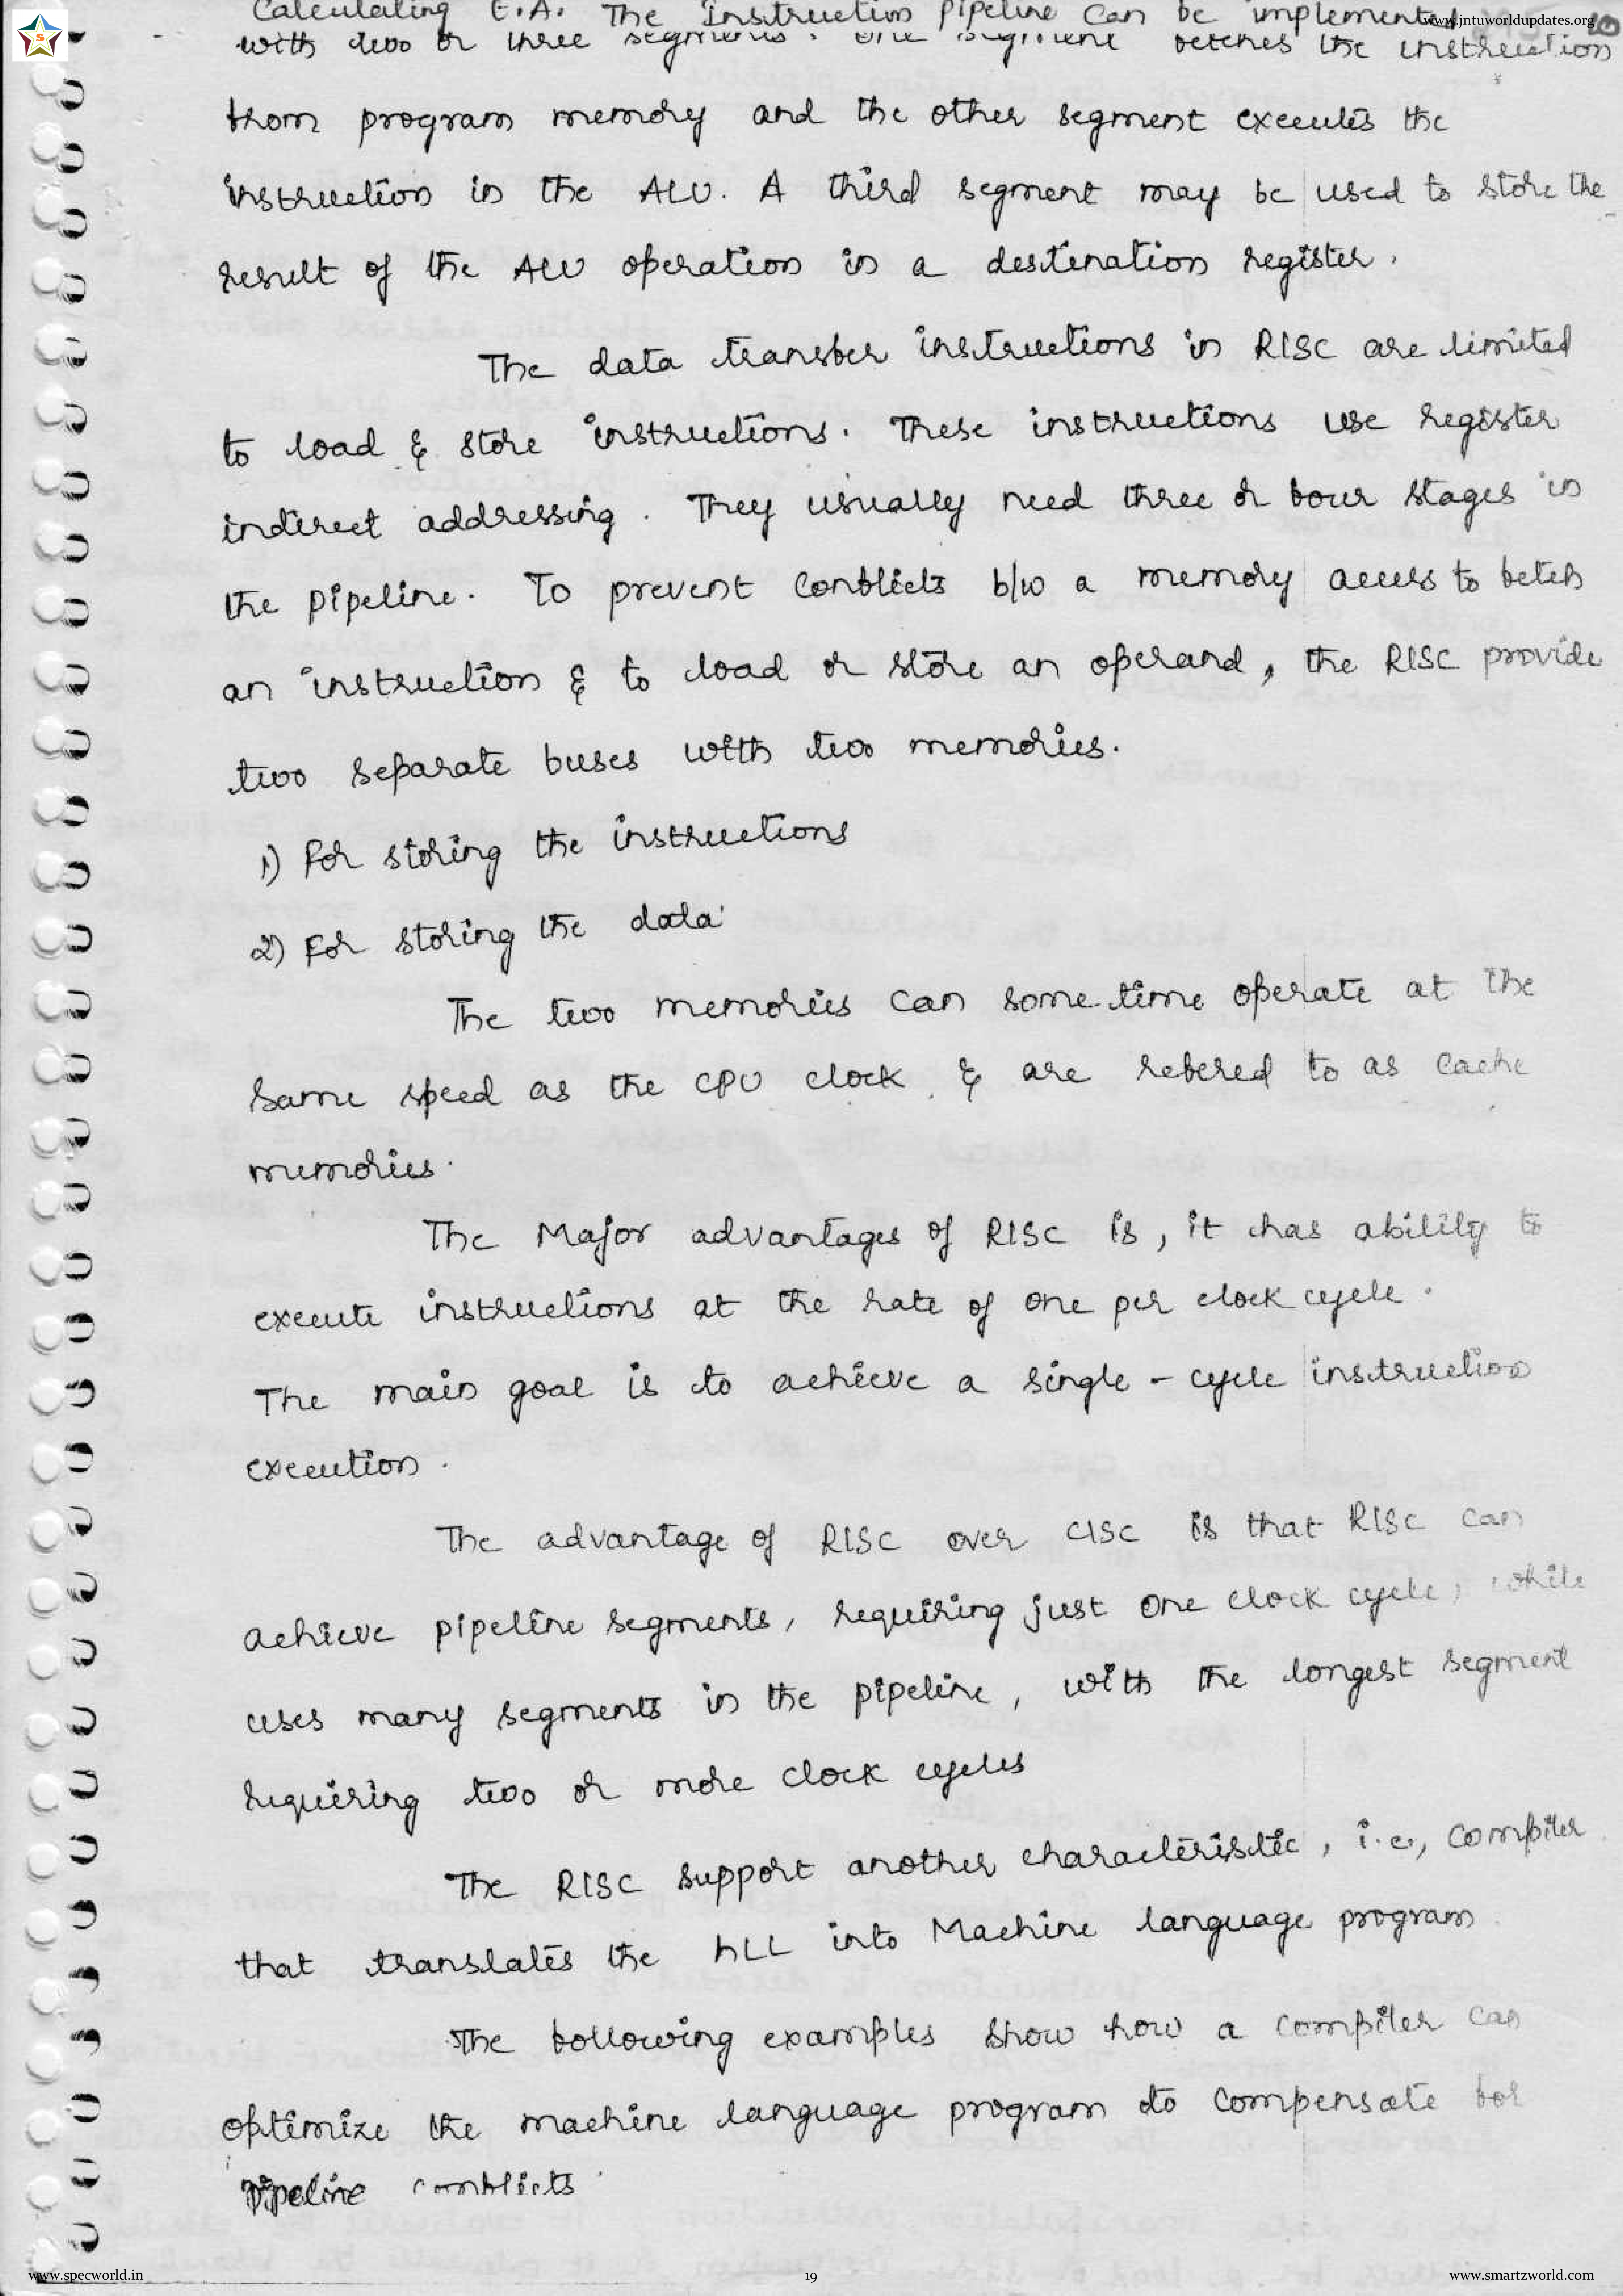 Calculating E.A. The Instruction pipeline can be implemented
www.jntuworldupdates.org
with two or three segments. one segment fetches the instruction
from program memory and the other segment executes the
instruction in the ALU. A third segment may be used to store the
result of the ALU operation in a destination register.
The data transfer instructions in RISC are limited
to load & store instructions. These instructions use register
indirect addressing. They usually need three or four stages in
the pipeline. To prevent conflicts b/w a memory access to fetch
an instruction & to load or store an operand, the RISC provide
two separate buses with two memories.
1) For storing the instructions
2) For storing the data
The two memories can some time operate at the
same speed as the CPU clock & are refered to as cache
memories.
The Major advantages of RISC is, it has ability to
execute instructions at the rate of one per clock cycle.
The main goal is to achieve a single - cycle instruction
execution.
The advantage of RISC over CISC is that RISC can
achieve pipeline segments, requiring just one clock cycle, while
uses many segments in the pipeline, with the longest segment
requiring two or more clock cycles
The RISC support another characteristic, i.e., compiler
that translates the HLL into Machine language program
The following examples show how a compiler can
optimize the machine language program to compensate for
pipeline conflicts.
www.specworld.in
19
www.smartzworld.com